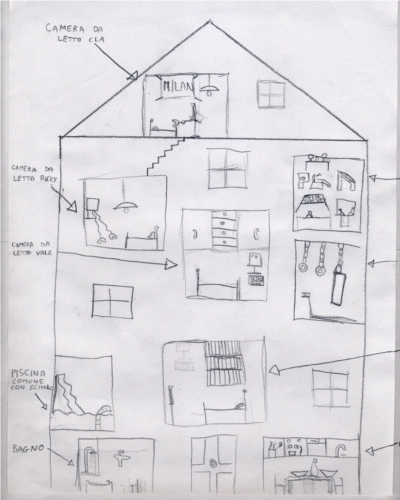 CAMERA DA
LETTO CLA
MILAN
CAMERA DA
LETTO RICKY
CAMERA DA
LETTO VALE
PISCINA
COMUNE
CON SCIVOLO
BAGNO